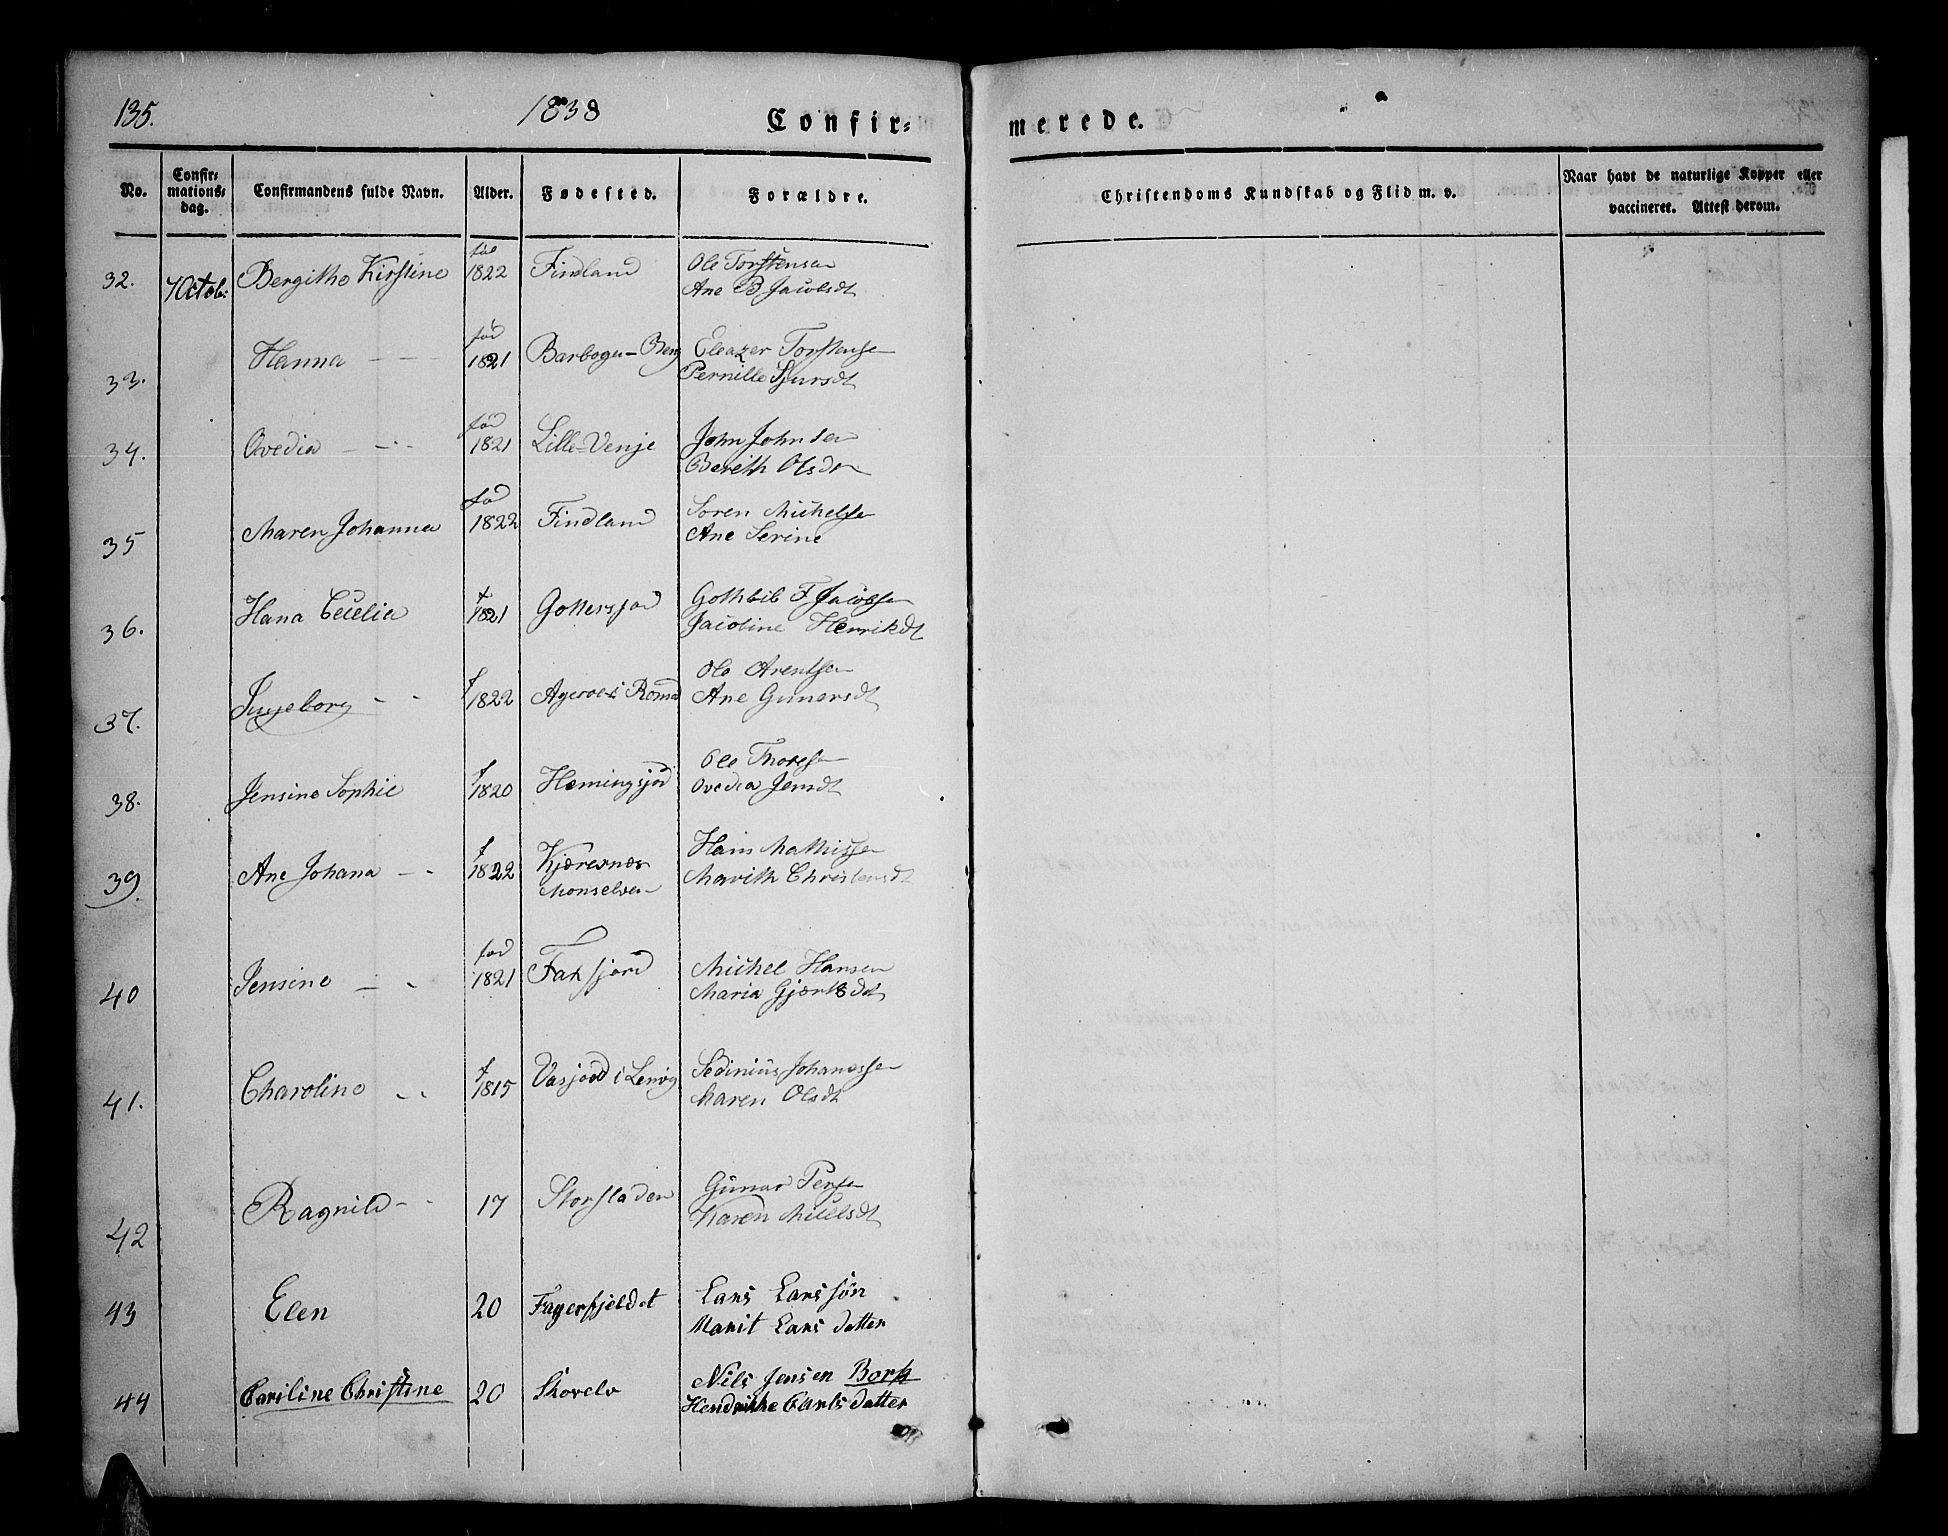 135. 1838 Confir= merede.
No. Confir-mations-dag. Confirmandens fulde Navn. Alder. Fødested. Forældre. Christendoms Kundskab og Flid m. v. Naar havt de naturlige Kopper eller vaccineret. Attest derom.
32. 7 Octob: Bergithe Kirstine fød 1822 Findland Ole Torstensen
Ane B Jacobsdt
33. Hanna — — fød 1821 Eleazer Torstense
Pernille Sjursdt
34. Ovedia — — fød 1821 Lille-Venje John Johnsen
Bereth Olsd
35 Maren Johanna fød 1822 Findland Søren Michelse
Ane Serine
36. Hana Cecelia f 1821 Gottersjord Jacobse
Jacobine Henrikdt
37. Ingeborg - - f 1822 Ole Arentse
Ane Gunersdt
38. Jensine Sophie f 1820 Hemingsjord Ole Thorese
Ovedia Jensdt
39. Ane Johana — - f 1822 Kjæresnes Hans Mathisse
Monselven Marith Christensdt
40 Jensine — - fød 1821 Faxfjord Michel Hansen
Maria
41. Charoline - - f 1815 Vasjord i Lenvig Sedinius Johannesse
Maren Olsdt
42 Ragnild - - 17 Storsladen Gunar Perse
Karen
43 Elen 20 Fagerfjeldet Lars Larssøn
Marit Lars datter
44 Cariline Christine 20 Skovelv Nils Jensen Bork
Hendrikke Carls datter